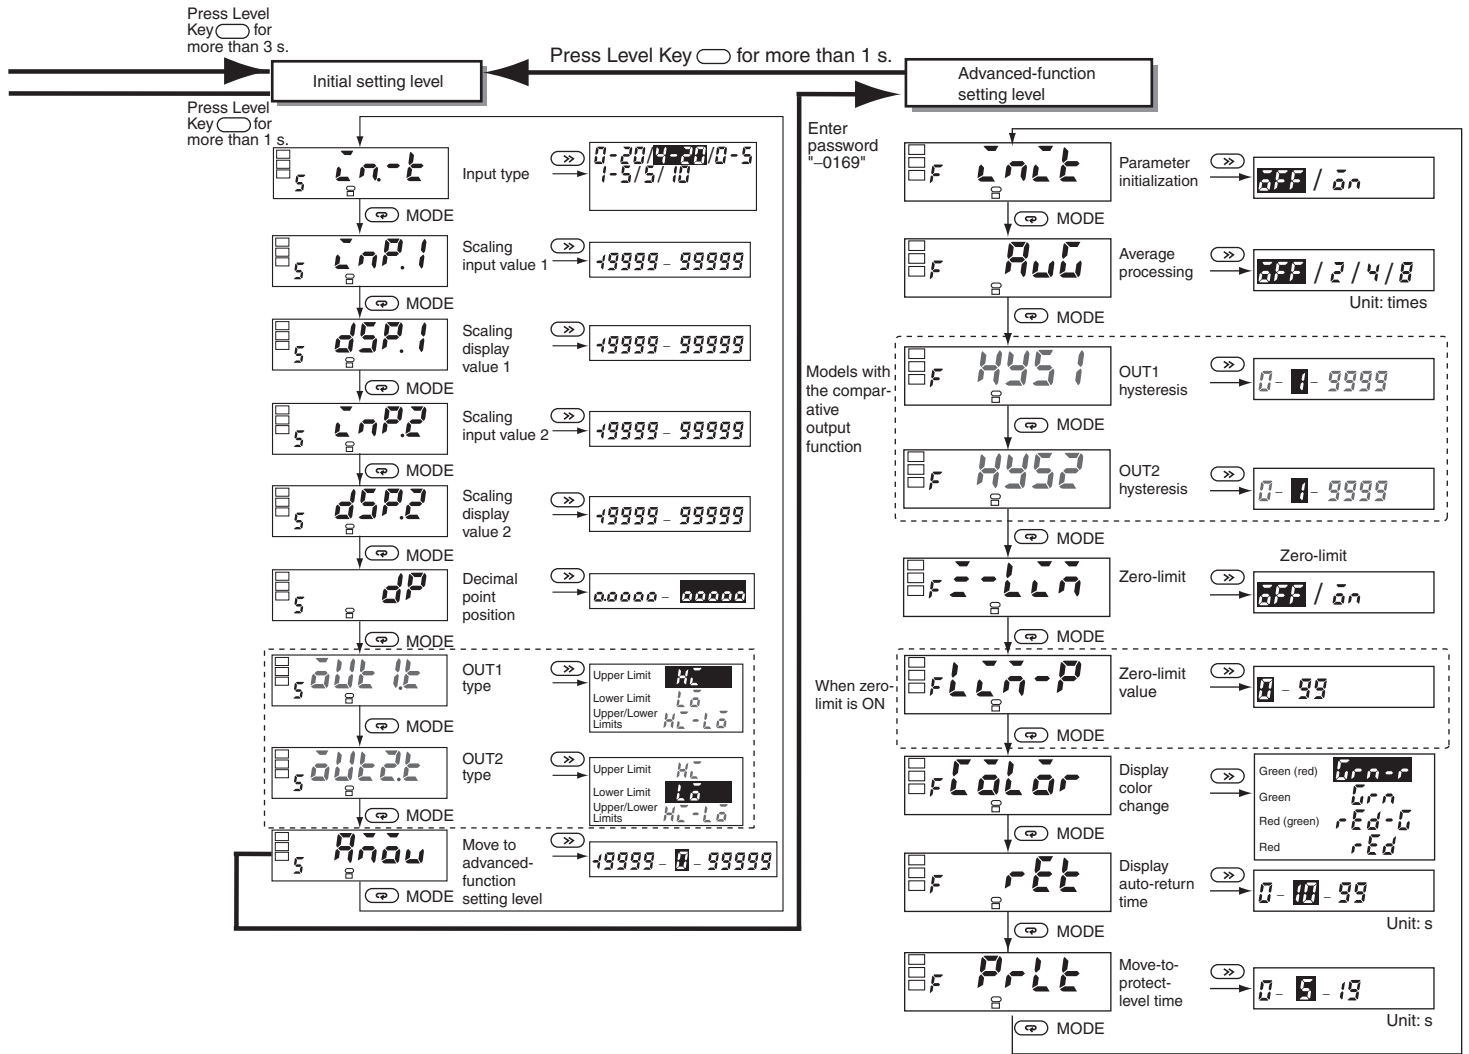 Press Level
Key for
more than 3 s.
Press Level Key for more than 1 s.
Initial setting level
Advanced-function
setting level
Press Level
Key for
more than 1 s.
Enter
password
"–0169"
S in-t
Input type
0-20/4-20/0-5
1-5/5/10
MODE
S inP.1
Scaling
input value 1
-19999 – 99999
MODE
S dSP.1
Scaling
display
value 1
-19999 – 99999
MODE
S inP.2
Scaling
input value 2
-19999 – 99999
MODE
S dSP.2
Scaling
display
value 2
-19999 – 99999
MODE
S dP
Decimal
point
position
0.0000 – 00000
MODE
S oUt1.t
OUT1
type
Upper Limit Hi
Lower Limit Lo
Upper/Lower
Limits Hi-Lo
MODE
S oUt2.t
OUT2
type
Upper Limit Hi
Lower Limit Lo
Upper/Lower
Limits Hi-Lo
MODE
S Amov
Move to
advanced-
function
setting level
-19999 – 0 – 99999
MODE
F init
Parameter
initialization
oFF / on
MODE
F AvG
Average
processing
oFF / 2 / 4 / 8
Unit: times
MODE
Models with
the compar-
ative
output
function
F HYS1
OUT1
hysteresis
0 – 1 – 9999
MODE
F HYS2
OUT2
hysteresis
0 – 1 – 9999
MODE
F Z-Lim
Zero-limit
Zero-limit
oFF / on
MODE
When zero-
limit is ON
F Lim-P
Zero-limit
value
0 – 99
MODE
F CoLor
Display
color
change
Green (red) Grn-r
Green Grn
Red (green) rEd-G
Red rEd
MODE
F rEt
Display
auto-return
time
0 – 10 – 99
Unit: s
MODE
F PrLt
Move-to-
protect-
level time
0 – 5 – 19
Unit: s
MODE